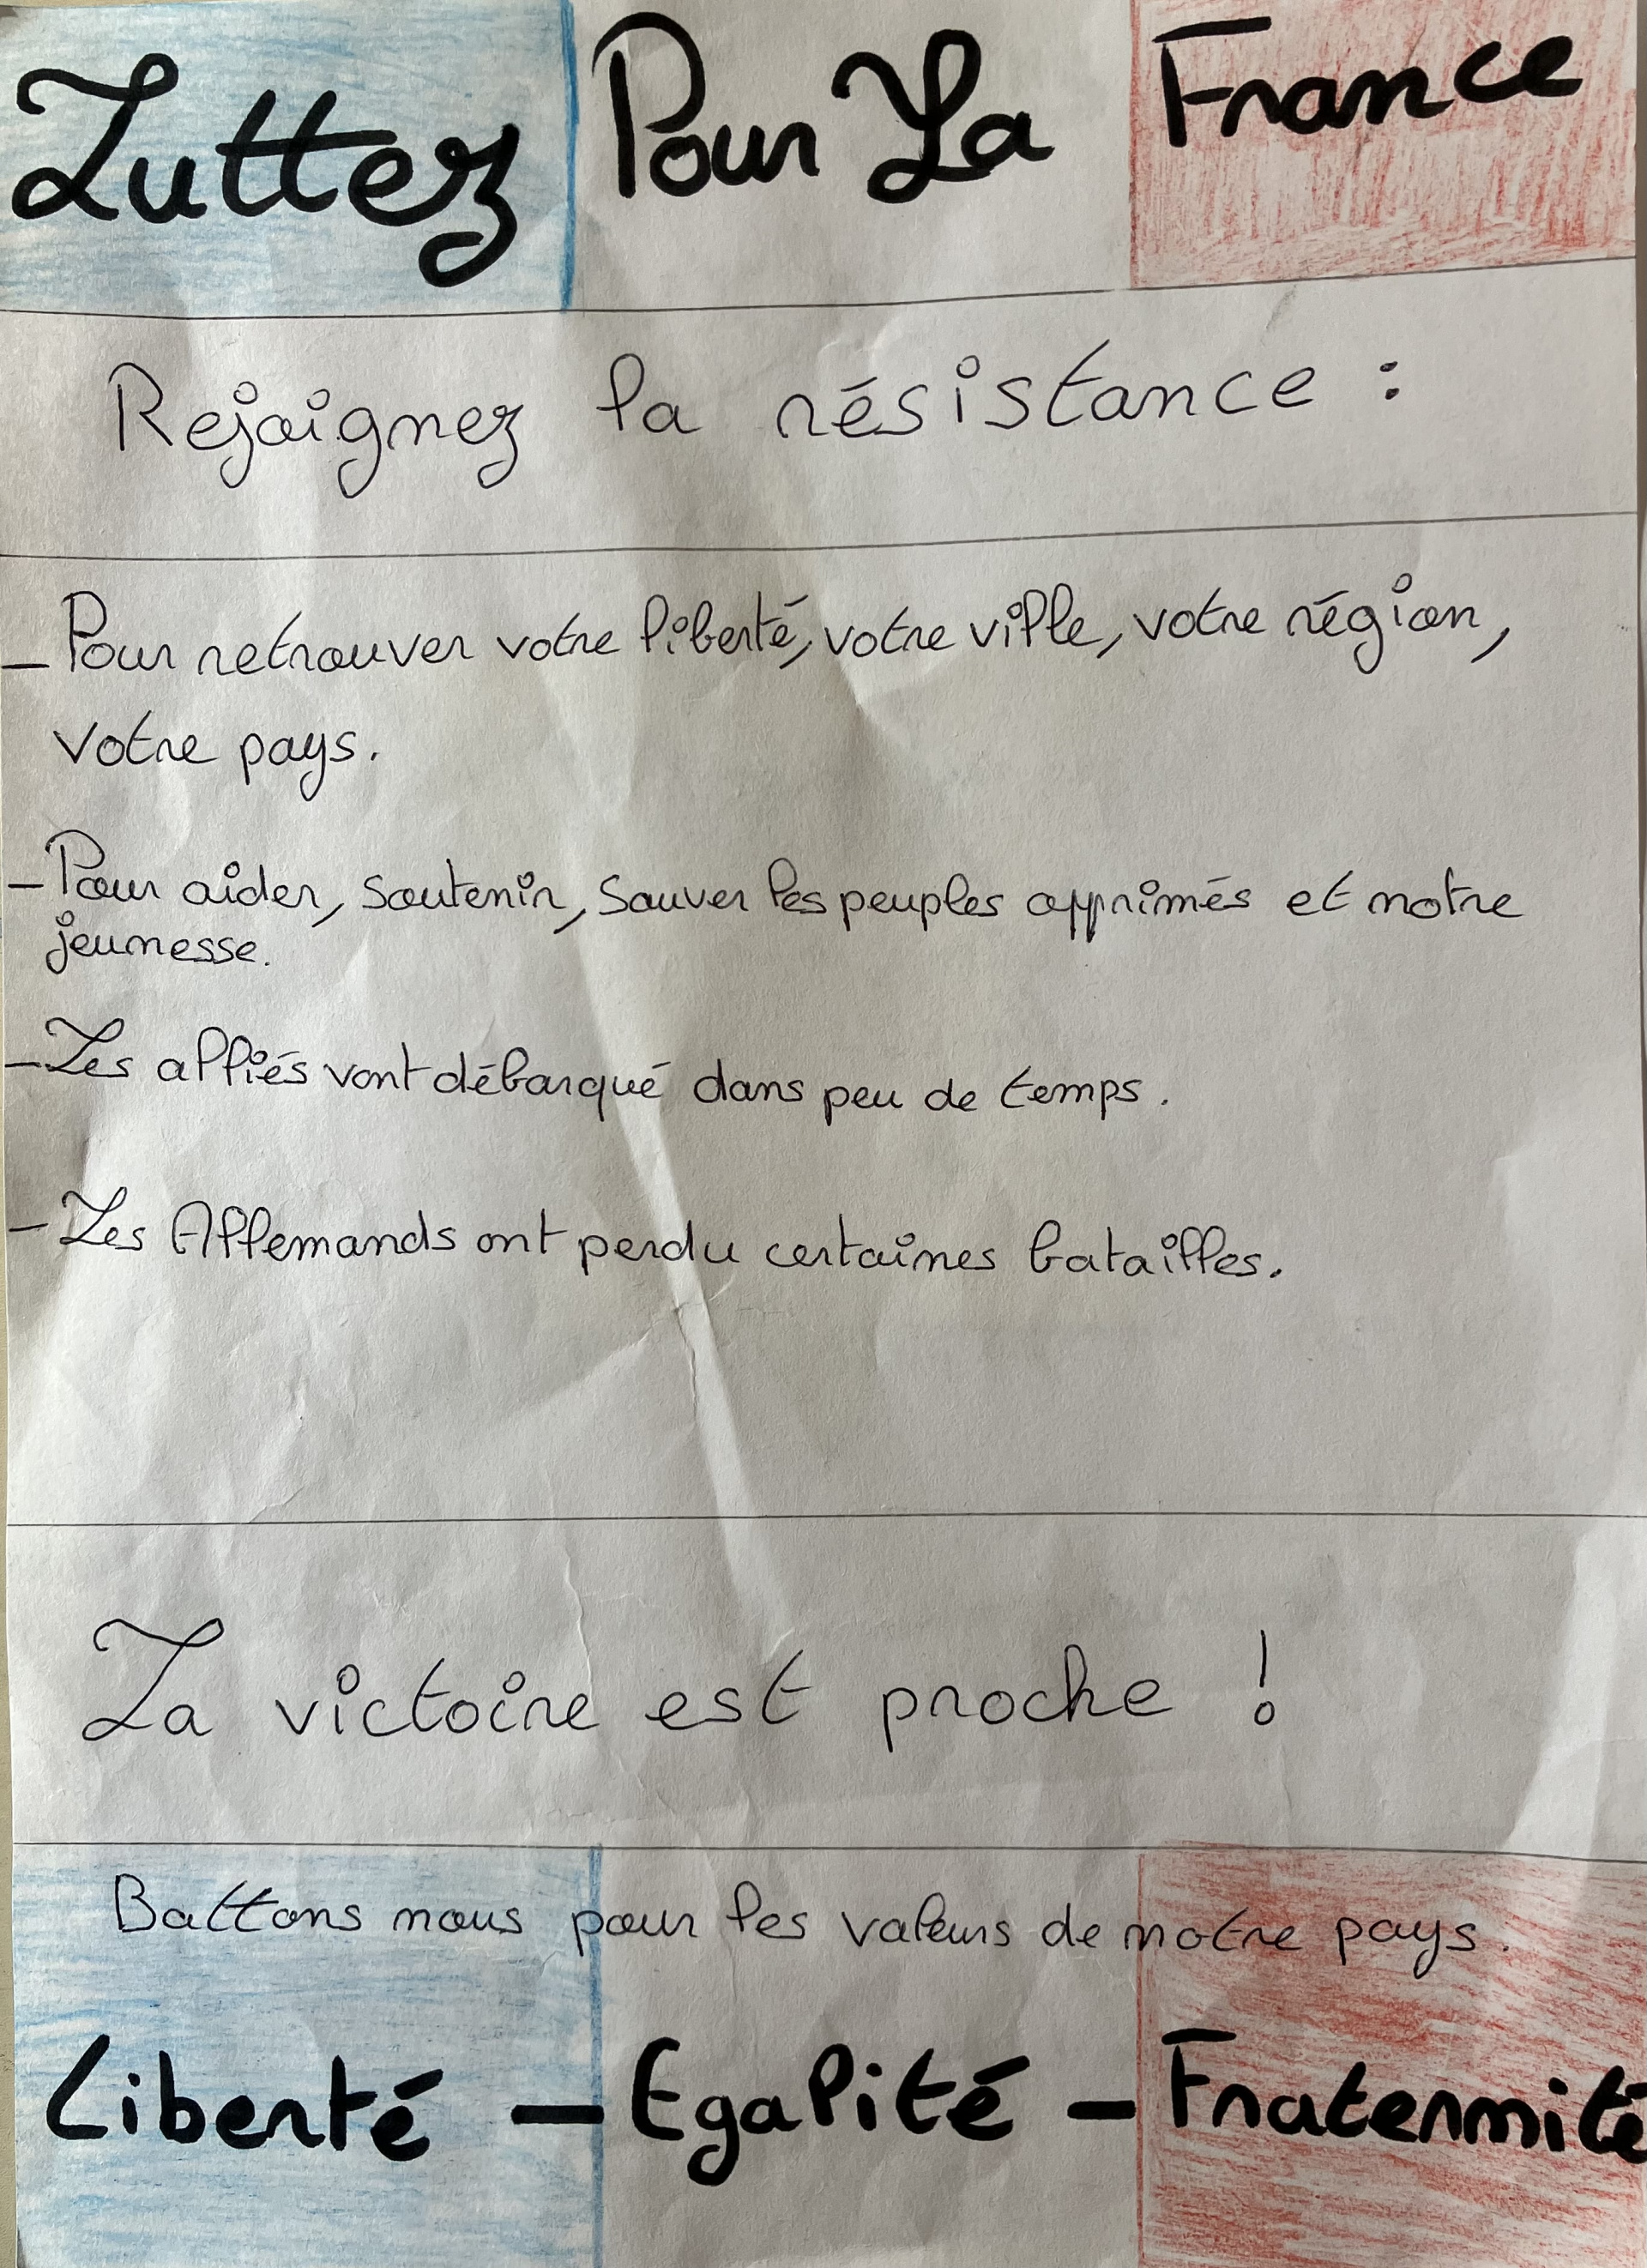 Luttez Pour La France
Rejoignez la résistance :
- Pour retrouver votre liberté, votre ville, votre région,
votre pays.
- Pour aider, soutenir, sauver les peuples opprimés et notre
jeunesse.
- Les alliés vont débarqué dans peu de temps.
- Les Allemands ont perdu certaines batailles.
La victoire est proche !
Battons nous pour les valeurs de notre pays.
Liberté - Egalité - Fraternité